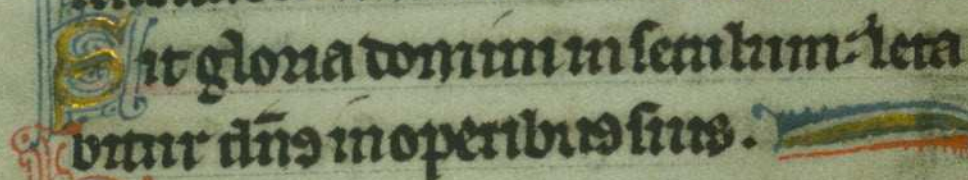 Sit gloria domini in seculum: leta
bitur dn̄s in operibus suis.